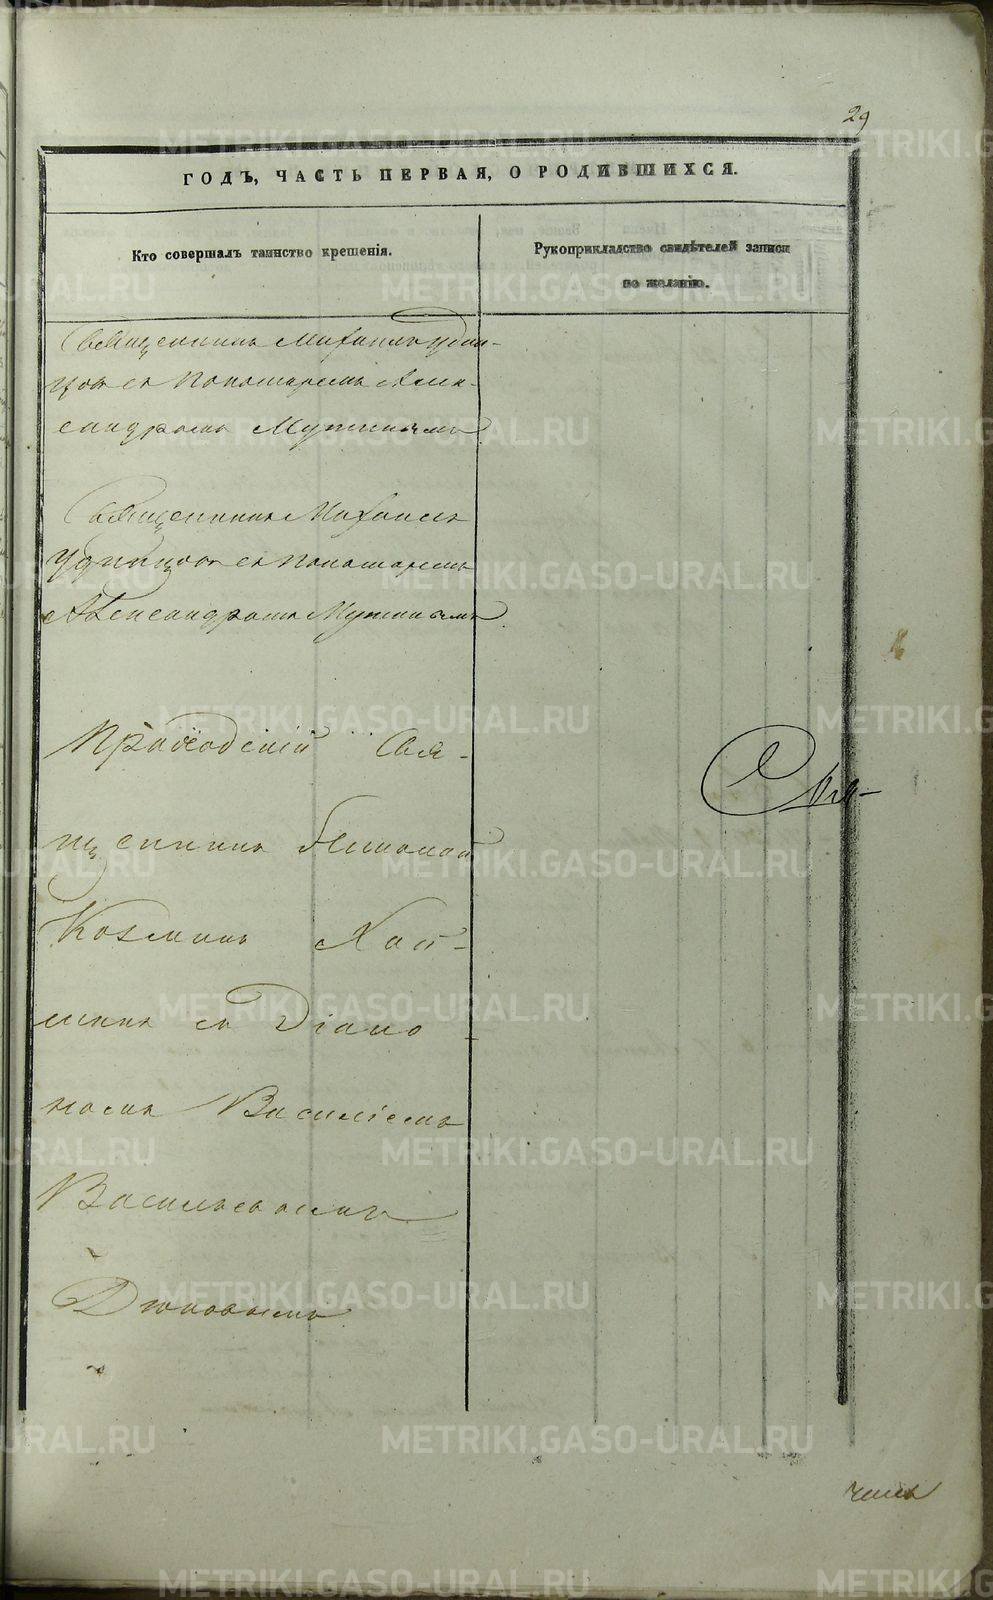 29
ГОДЪ, ЧАСТЬ ПЕРВАЯ, О РОДИВШИХСЯ.
Кто совершалъ таинство крещенія.
Рукоприкладство свидѣтелей записи
по желанію.
Священникъ Михаилъ Удин-
цовъ съ Пономаремъ Алек-
сандромъ
Священникъ Михаилъ
Удинцовъ съ Пономаремъ
Александромъ
Приходскій Свя-
щенникъ
Козминъ
съ Діако
номъ Василіемъ
Васильевымъ
METRIKI.GASO-URAL.RU